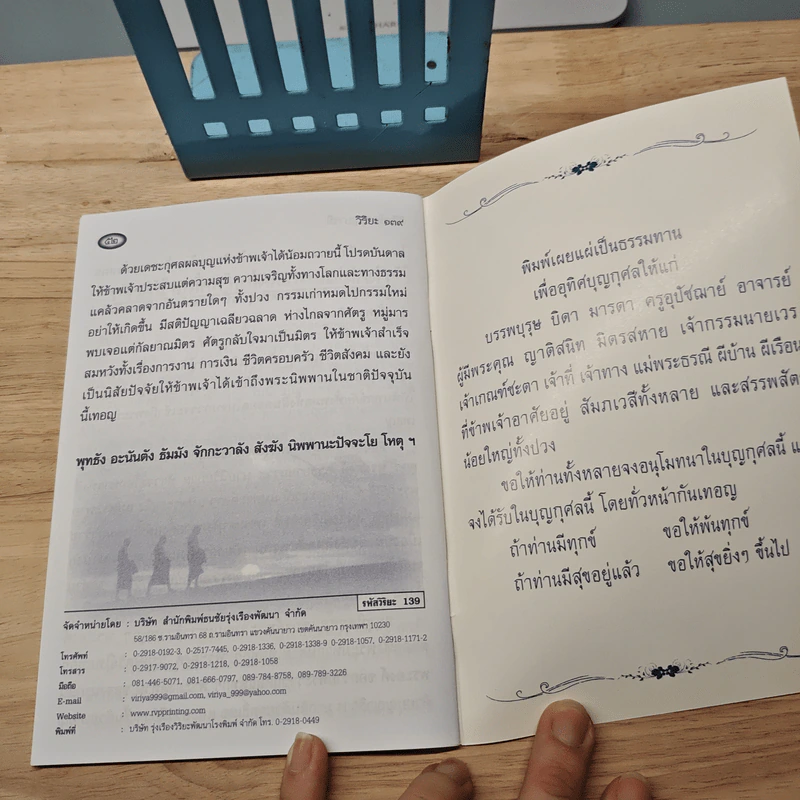 ๕๒
วิริยะ ๑๓๙
ด้วยเดชะกุศลผลบุญแห่งข้าพเจ้าได้น้อมถวายนี้ โปรดบันดาล
ให้ข้าพเจ้าประสบแต่ความสุข ความเจริญทั้งทางโลกและทางธรรม
แคล้วคลาดจากอันตรายใดๆ ทั้งปวง กรรมเก่าหมดไปกรรมใหม่
อย่าให้เกิดขึ้น มีสติปัญญาเฉลียวฉลาด ห่างไกลจากศัตรู หมู่มาร
พบเจอแต่กัลยาณมิตร ศัตรูกลับใจมาเป็นมิตร ให้ข้าพเจ้าสำเร็จ
สมหวังทั้งเรื่องการงาน การเงิน ชีวิตครอบครัว ชีวิตสังคม และยัง
เป็นนิสัยปัจจัยให้ข้าพเจ้าได้เข้าถึงพระนิพพานในชาติปัจจุบัน
นี้เทอญ
พุทธัง อะนันตัง ธัมมัง จักกะวาลัง สังฆัง นิพพานะปัจจะโย โหตุ ฯ
รหัสวิริยะ 139
จัดจำหน่ายโดย : บริษัท สำนักพิมพ์ธนชัยรุ่งเรืองพัฒนา จำกัด
58/186 ซ.รามอินทรา 68 ถ.รามอินทรา แขวงคันนายาว เขตคันนายาว กรุงเทพฯ 10230
โทรศัพท์ : 0-2918-0192-3, 0-2517-7445, 0-2918-1336, 0-2918-1338-9 0-2918-1057, 0-2918-1171-2
โทรสาร : 0-2917-9072, 0-2918-1218, 0-2918-1058
มือถือ : 081-446-5071, 081-666-0797, 089-784-8758, 089-789-3226
E-mail : viriya999@gmail.com, viriya_999@yahoo.com
Website : www.rvpprinting.com
พิมพ์ที่ : บริษัท รุ่งเรืองวิริยะพัฒนาโรงพิมพ์ จำกัด โทร. 0-2918-0449
พิมพ์เผยแผ่เป็นธรรมทาน
เพื่ออุทิศบุญกุศลให้แก่
บรรพบุรุษ บิดา มารดา ครูอุปัชฌาย์ อาจารย์
ผู้มีพระคุณ ญาติสนิท มิตรสหาย เจ้ากรรมนายเวร
เจ้าเกณฑ์ชะตา เจ้าที่ เจ้าทาง แม่พระธรณี ผีบ้าน ผีเรือน
ที่ข้าพเจ้าอาศัยอยู่ สัมภเวสีทั้งหลาย และสรรพสัตว์
น้อยใหญ่ทั้งปวง
ขอให้ท่านทั้งหลายจงอนุโมทนาในบุญกุศลนี้
จงได้รับในบุญกุศลนี้ โดยทั่วหน้ากันเทอญ
ถ้าท่านมีทุกข์ ขอให้พ้นทุกข์
ถ้าท่านมีสุขอยู่แล้ว ขอให้สุขยิ่งๆ ขึ้นไป